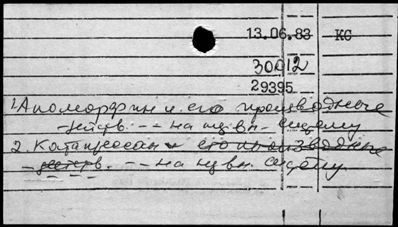 13.06.83 КС
30012
29395
1 Апоморфин и его производные
действ. -- на нервн. систему
2. его производные
действ. -- на нервн. систему